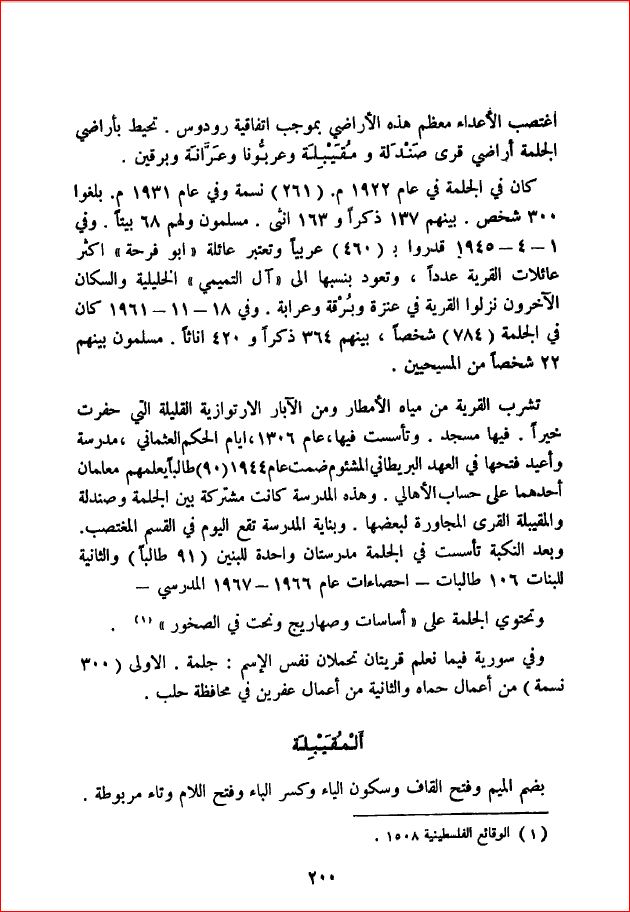 اغتصب الأعداء معظم هذه الأراضي بموجب اتفاقية رودوس . تحيط بأراضي
الجلمة أراضي قرى صَنْدَلة و مُقَيْبِلة وعربُّونا وعَرَّانة وبرقين .
كان في الجلمة في عام ١٩٢٢ م. (٢٦١) نسمة وفي عام ١٩٣١ م. بلغوا
٣٠٠ شخص . بينهم ١٣٧ ذكراً و ١٦٣ انثى . مسلمون ولهم ٦٨ بيتاً . وفي
١ – ٤ – ١٩٤٥ قدروا بـ (٤٦٠) عربياً وتعتبر عائلة « ابو فرحة » اكثر
عائلات القرية عدداً ، وتعود بنسبها الى « آل التميمي » الخليلية والسكان
الآخرون نزلوا القرية في عنزة وبُرْقة وعرابة . وفي ١٨ – ١١ – ١٩٦١ كان
في الجلمة (٧٨٤) شخصاً ، بينهم ٣٦٤ ذكراً و ٤٢٠ اناثاً . مسلمون بينهم
٢٢ شخصاً من المسيحيين .
تشرب القرية من مياه الأمطار ومن الآبار الارتوازية القليلة التي حفرت
خيراً . فيها مسجد . وتأسست فيها، عام ١٣٠٦، ايام الحكم العثماني ، مدرسة
وأعيد فتحها في العهد البريطاني المشئوم ضمت عام ١٩٤٤ (٩٠) طالباً يعلمهم معلمان
أحدهما على حساب الأهالي . وهذه المدرسة كانت مشتركة بين الجلمة وصندلة
والمقيبلة القرى المجاورة لبعضها . وبناية المدرسة تقع اليوم في القسم المغتصب.
وبعد النكبة تأسست في الجلمة مدرستان واحدة للبنين (٩١ طالباً) والثانية
للبنات ١٠٦ طالبات – احصاءات عام ١٩٦٦ – ١٩٦٧ المدرسي –
وتحتوي الجلمة على « أساسات وصهاريج ونحت في الصخور » (١) .
وفي سورية فيما نعلم قريتان تحملان نفس الإسم : جلمة . الاولى ( ٣٠٠
نسمة ) من أعمال حماه والثانية من أعمال عفرين في محافظة حلب .
اَلْمُقَيْبِلة
بضم الميم وفتح القاف وسكون الياء وكسر الباء وفتح اللام وتاء مربوطة .
(١) الوقائع الفلسطينية ١٥٠٨ .
٢٠٠